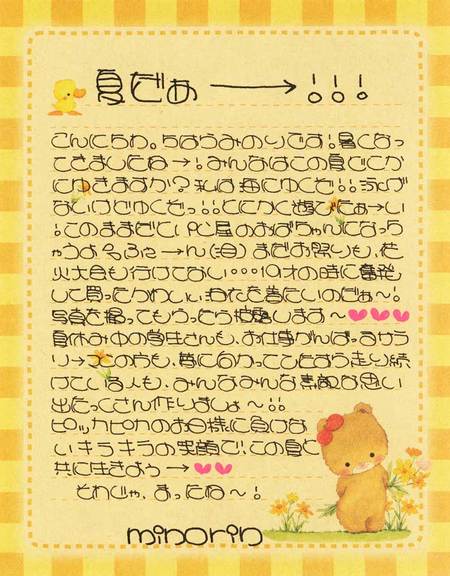 夏だぁ ──→ !!!
こんにちわ。ちはらみのりです!暑くなっ
てきましたね→!みんなはこの夏どこか
にゆきますか?私は海にゆくぞ!!泳げ
ないけどゆくぞっ!!とにかく遊びたぁ→い
!このままだとPC屋のおばちゃんになっち
ゃうよ ふぇ→ん(泣)まだお祭りも、花
火大会も行けてない・・・・19才の時に奮発
して買ったかわいぃゆかたを着たいのだぁ〜!
写真を撮ってもらったら披露します〜♥♥♥
夏休み中の学生さんも、お仕事がんばるサラ
リ→マンの方も、夢に向かってひたすら走り続
けている人も、みんなみんな素敵な思い
出たっくさん作りましょ〜!!
ピッカピカのお日様に負けな
いキラキラの笑顔で、この夏と
共に生きよう→♥♥
それじゃ、まったね〜!
minorin